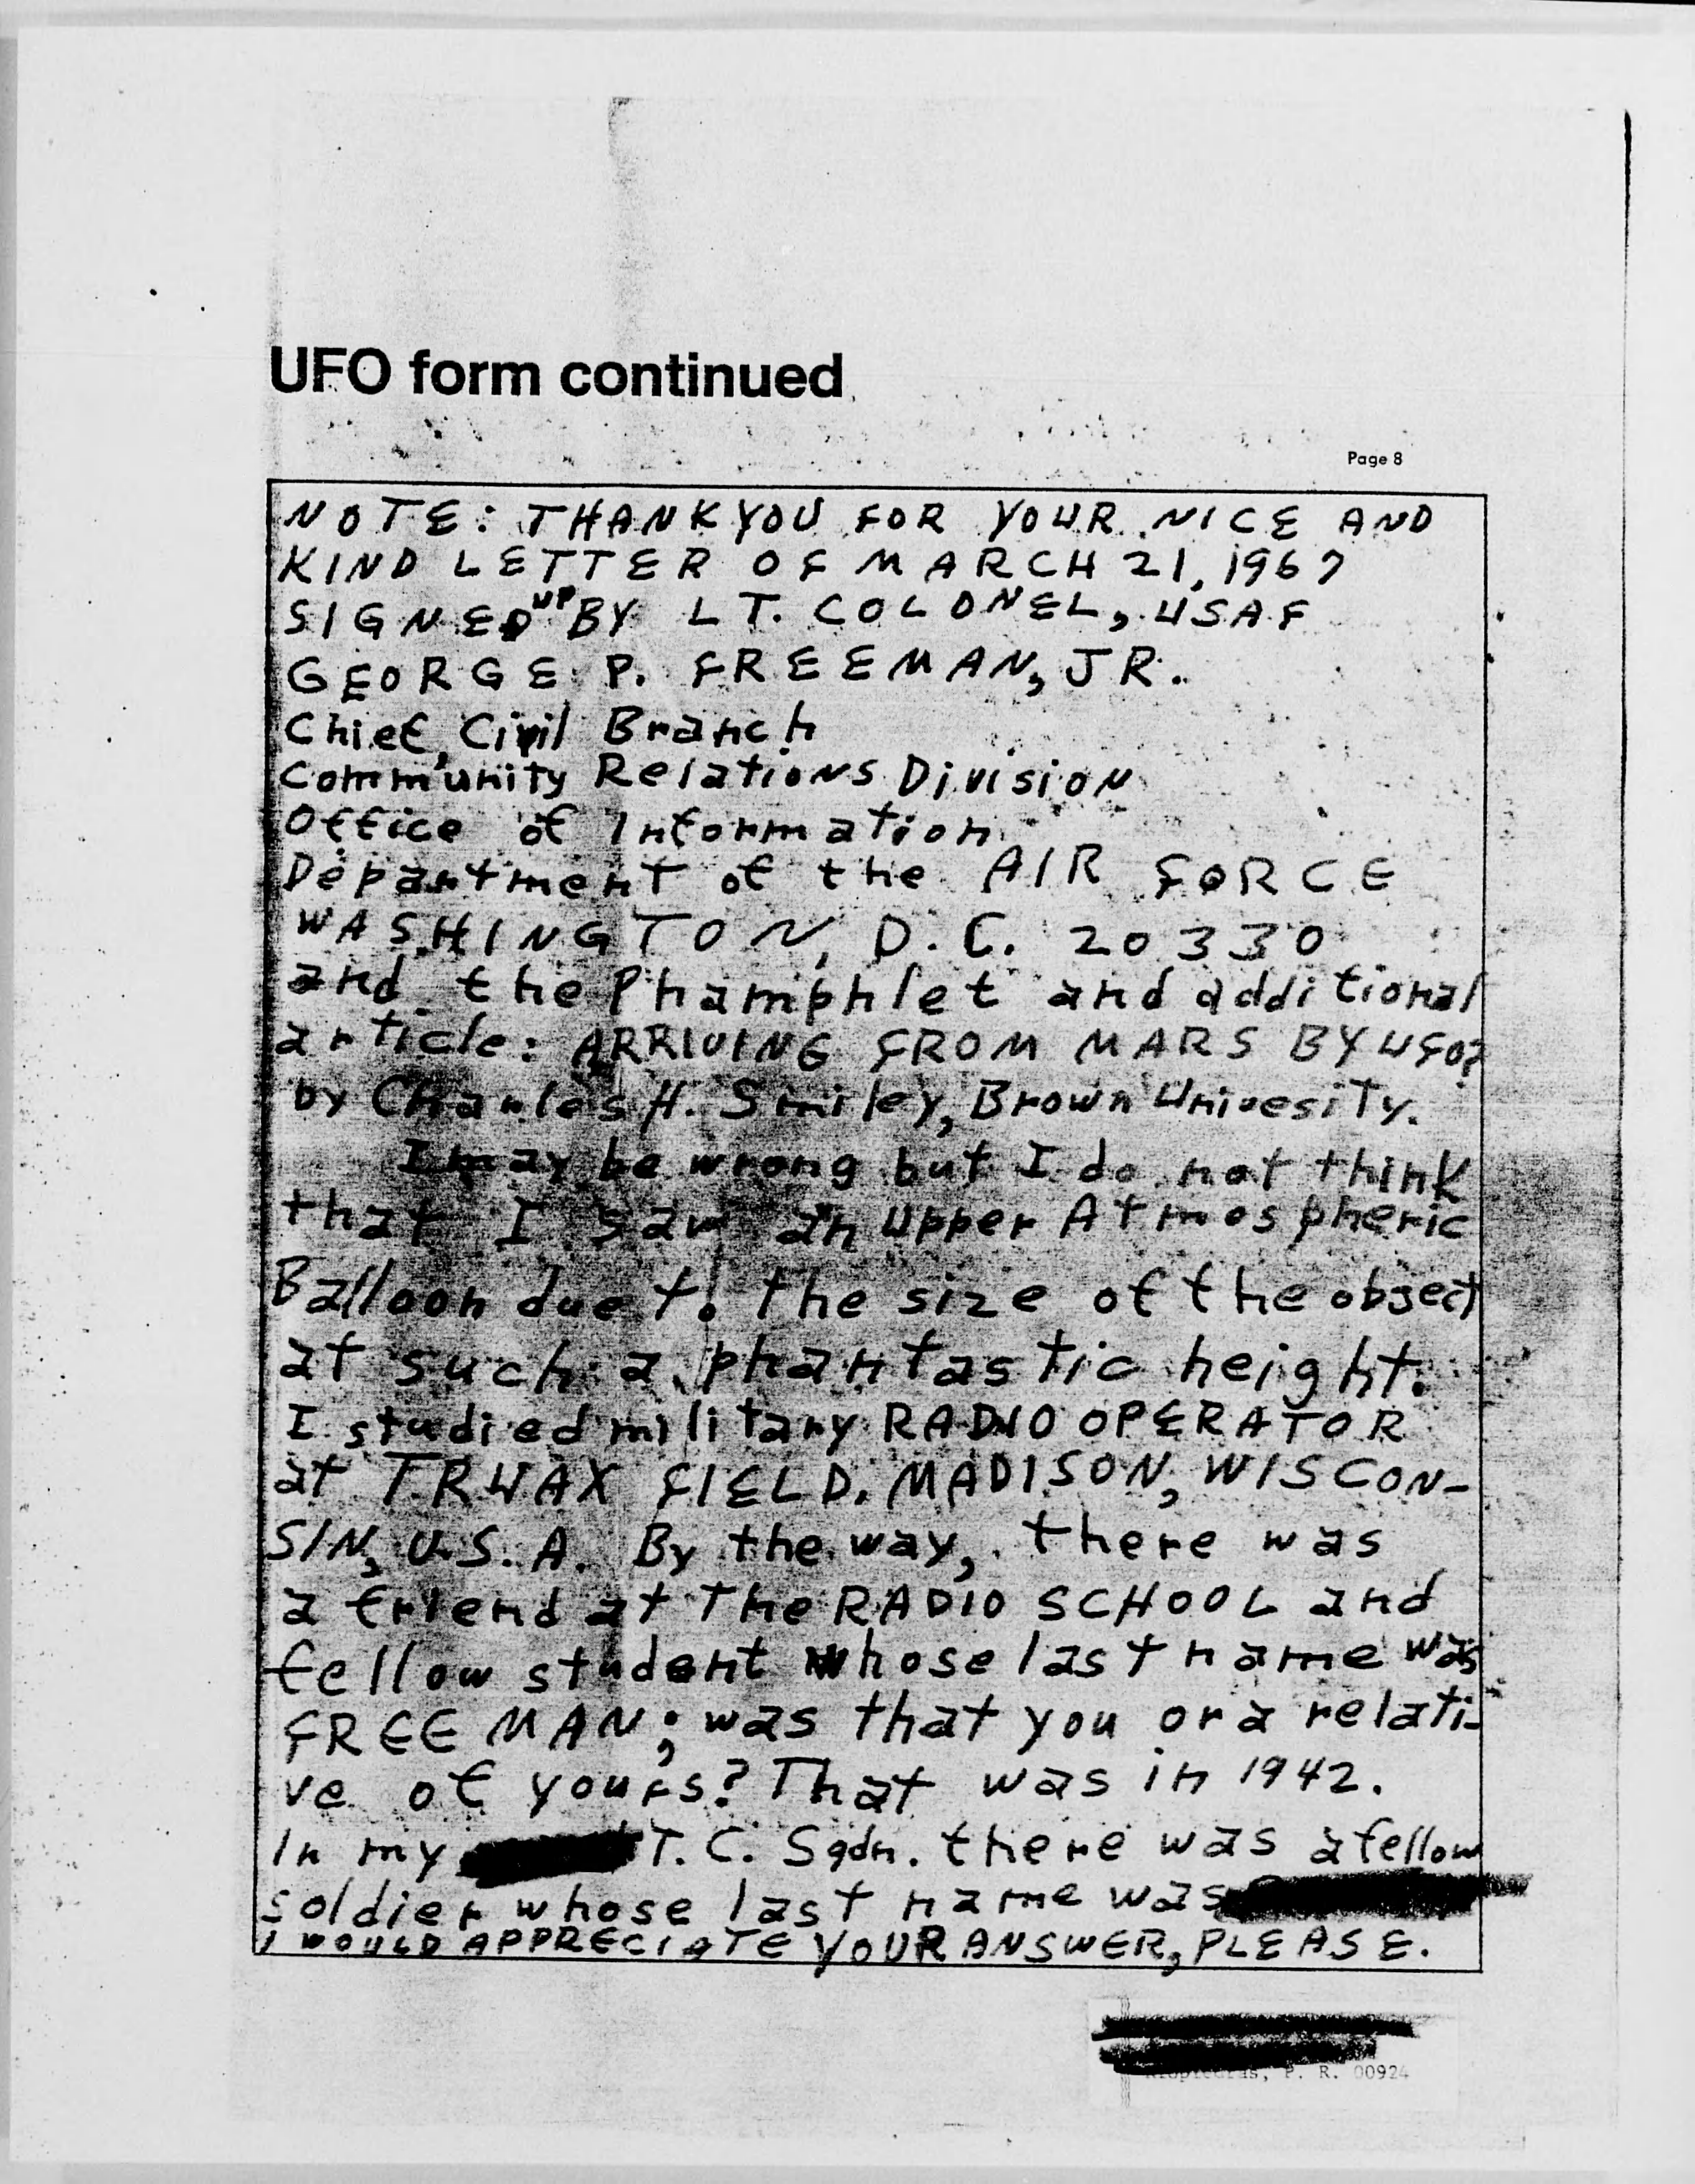 UFO form continued
Page 8
NOTE: THANK YOU FOR YOUR NICE AND
KIND LETTER OF MARCH 21, 1967
SIGNED UP BY LT. COLONEL, USAF
GEORGE P. FREEMAN, JR.
Chief, Civil Branch
Community Relations Division
Office of Information
Department of the AIR FORCE
WASHINGTON, D.C. 20330
and the Phamphlet and additional
article: ARRIVING FROM MARS BY UFO?
by Charles H. Smiley, Brown Univesity.
I may be wrong but I do not think
that I saw an Upper Atmospheric
Balloon due to the size of the object
at such a phantastic height.
I studied military RADIO OPERATOR
at TRUAX FIELD, MADISON, WISCON-
SIN, U.S.A. By the way, there was
a friend at the RADIO SCHOOL and
fellow student whose last name was
FREEMAN; was that you or a relati-
ve of yours? That was in 1942.
In my T.C. Sqdn. there was a fellow
soldier whose last name was
I WOULD APPRECIATE YOUR ANSWER, PLEASE.
P. R. 00924